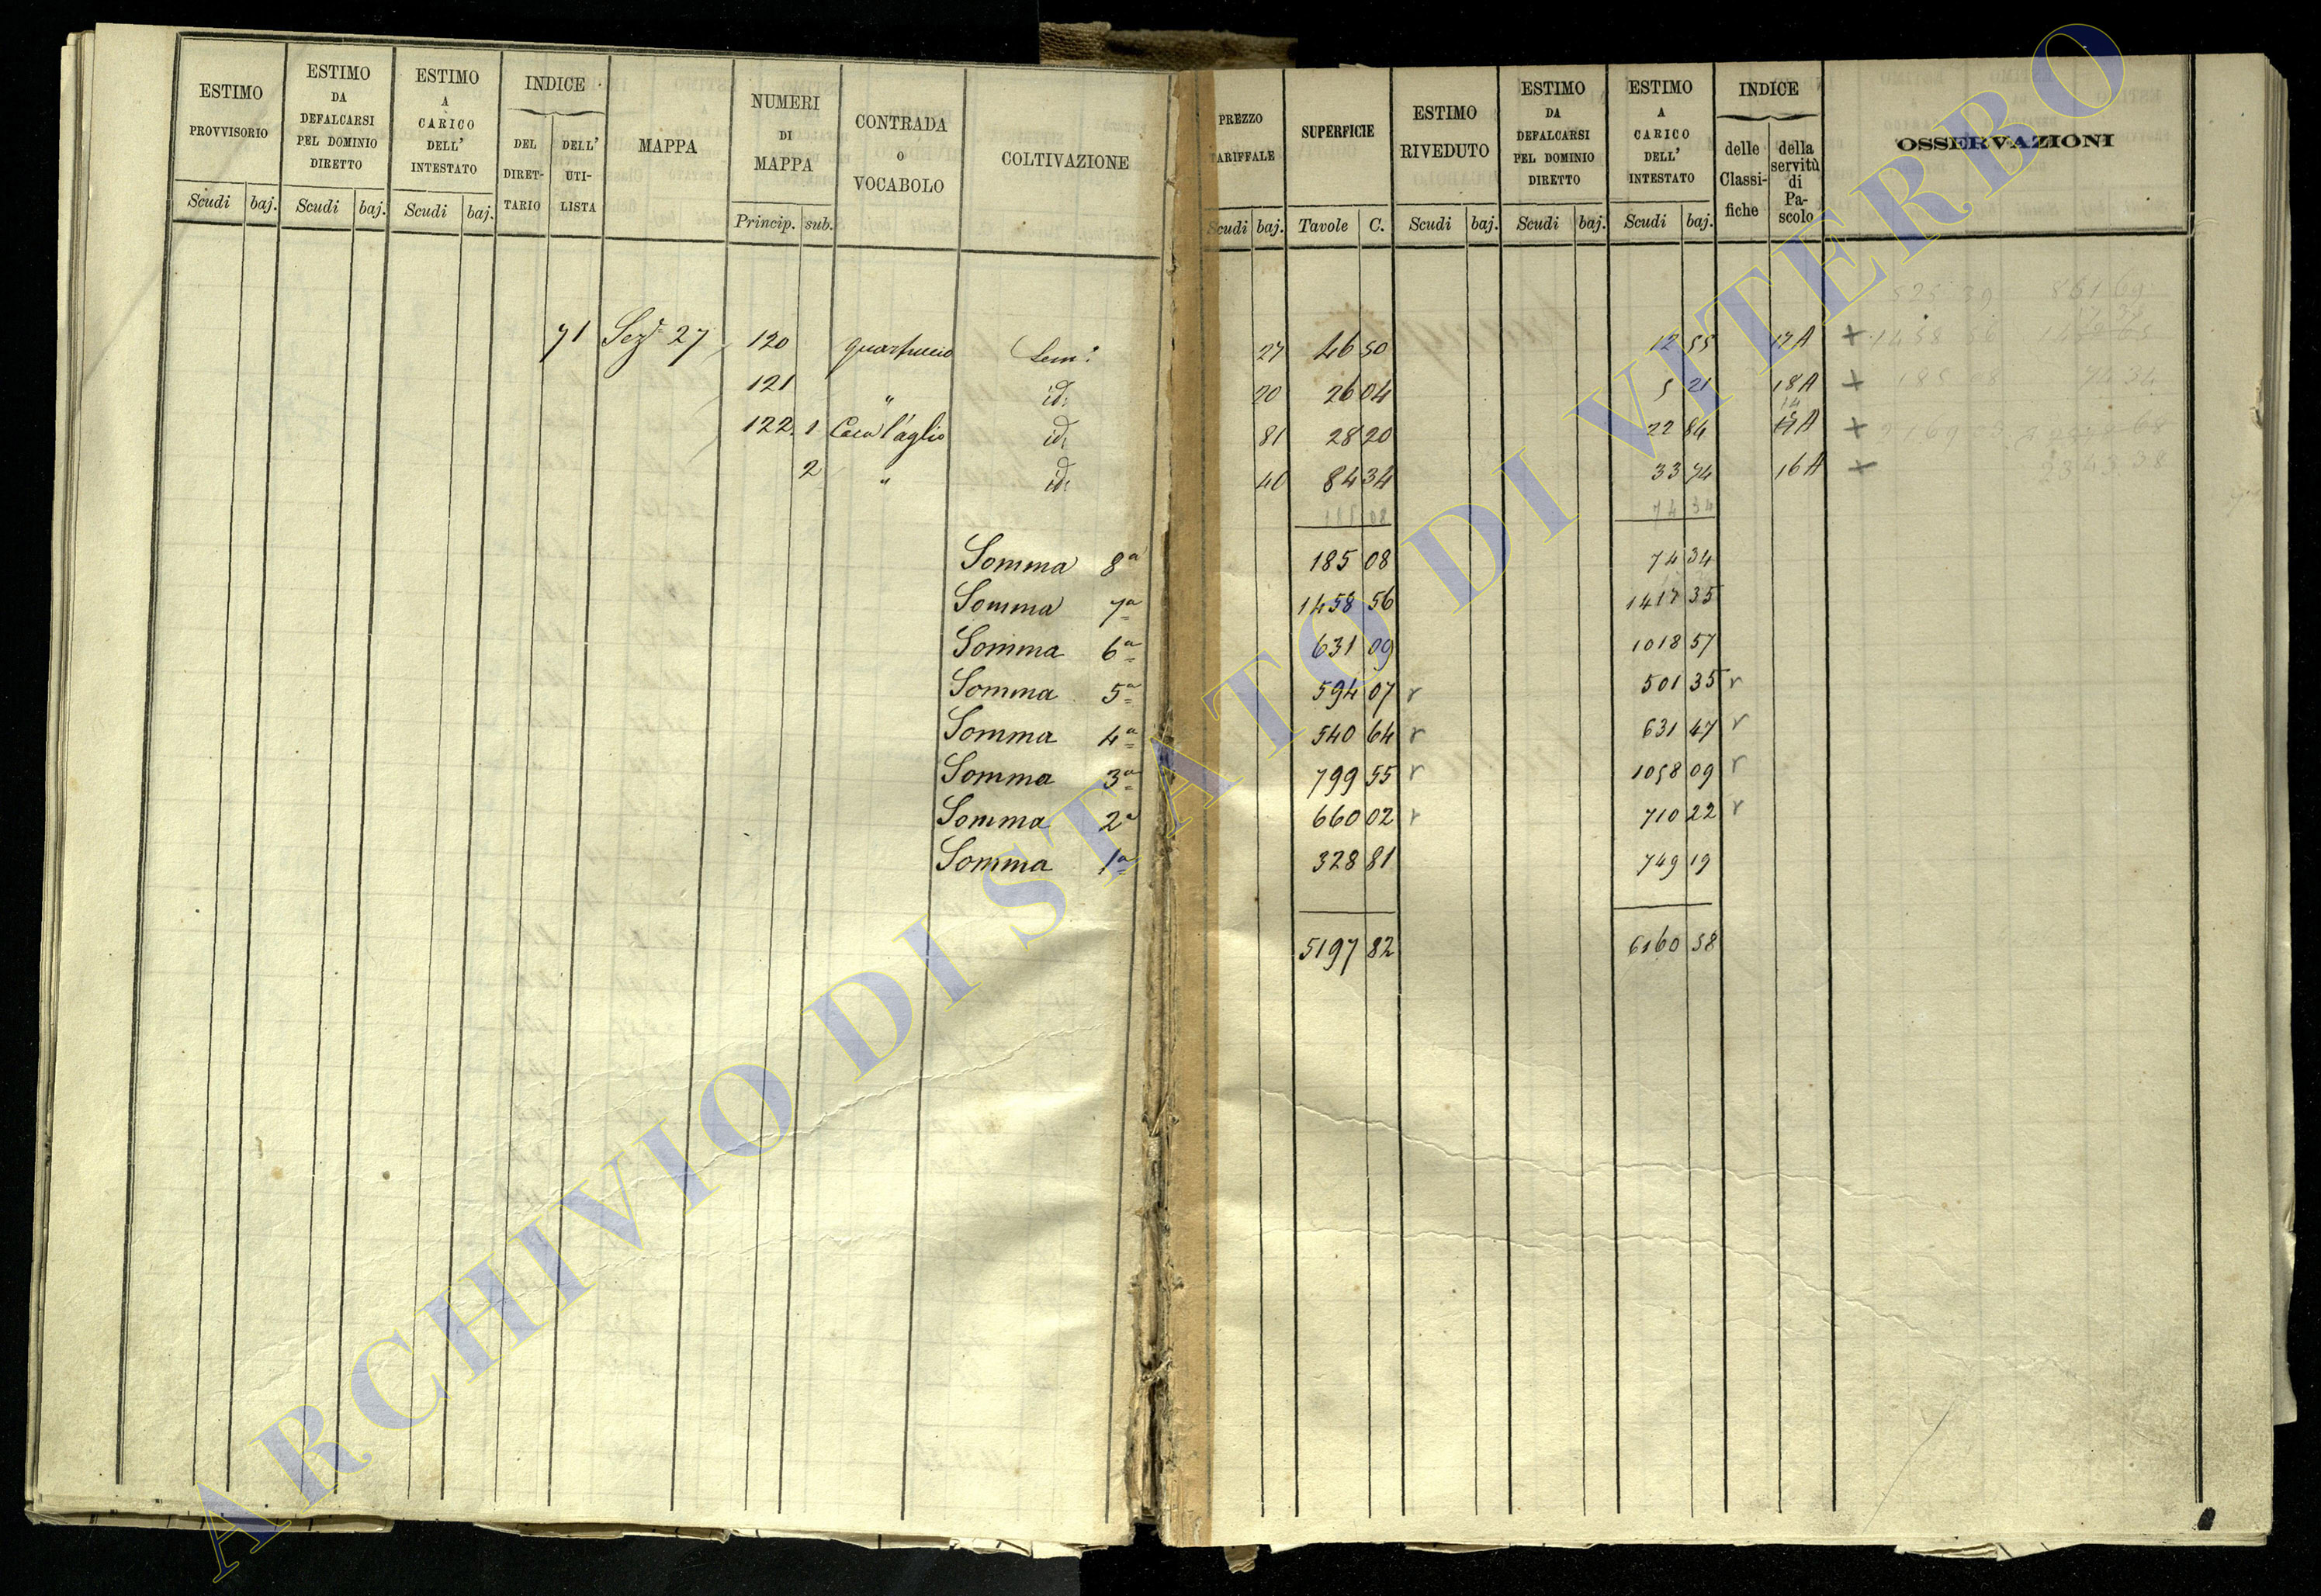 ESTIMO PROVVISORIO
Scudi baj.
ESTIMO DA DEFALCARSI PEL DOMINIO DIRETTO
Scudi baj.
ESTIMO A CARICO DELL' INTESTATO
Scudi baj.
INDICE
DEL DIRET-TARIO
DELL' UTI-LISTA
MAPPA
NUMERI DI MAPPA
Princip. sub.
CONTRADA O VOCABOLO
COLTIVAZIONE
PREZZO TARIFFALE
Scudi baj.
SUPERFICIE
Tavole C.
ESTIMO RIVEDUTO
Scudi baj.
ESTIMO DA DEFALCARSI PEL DOMINIO DIRETTO
Scudi baj.
ESTIMO A CARICO DELL' INTESTATO
Scudi baj.
INDICE
delle Classi-fiche
della servitù di Pa-scolo
OSSERVAZIONI
71 Sez.e 27 120 quartuccio Sem: 27 46 50 12 55 17A +
121 " id: 20 26 04 5 21 18A +
14
122. 1 id: 81 28 20 22 84 A +
2 " id: 40 84 34 33 74 16A +
74 34
Somma 8a 185 08 74 34
Somma 7a 1458 56 1417 35
Somma 6a 631 09 1018 57
Somma 5a 594 07 r 501 35 r
Somma 4a 540 64 r 631 47 r
Somma 3a 799 55 r 1058 09 r
Somma 2a 660 02 r 710 22 r
Somma 1a 328 81 749 19
5197 82 6160 58
ARCHIVIO DI STATO DI VITERBO